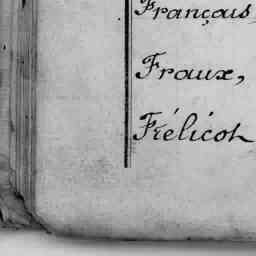 Français,
Fraux,
Frélicot